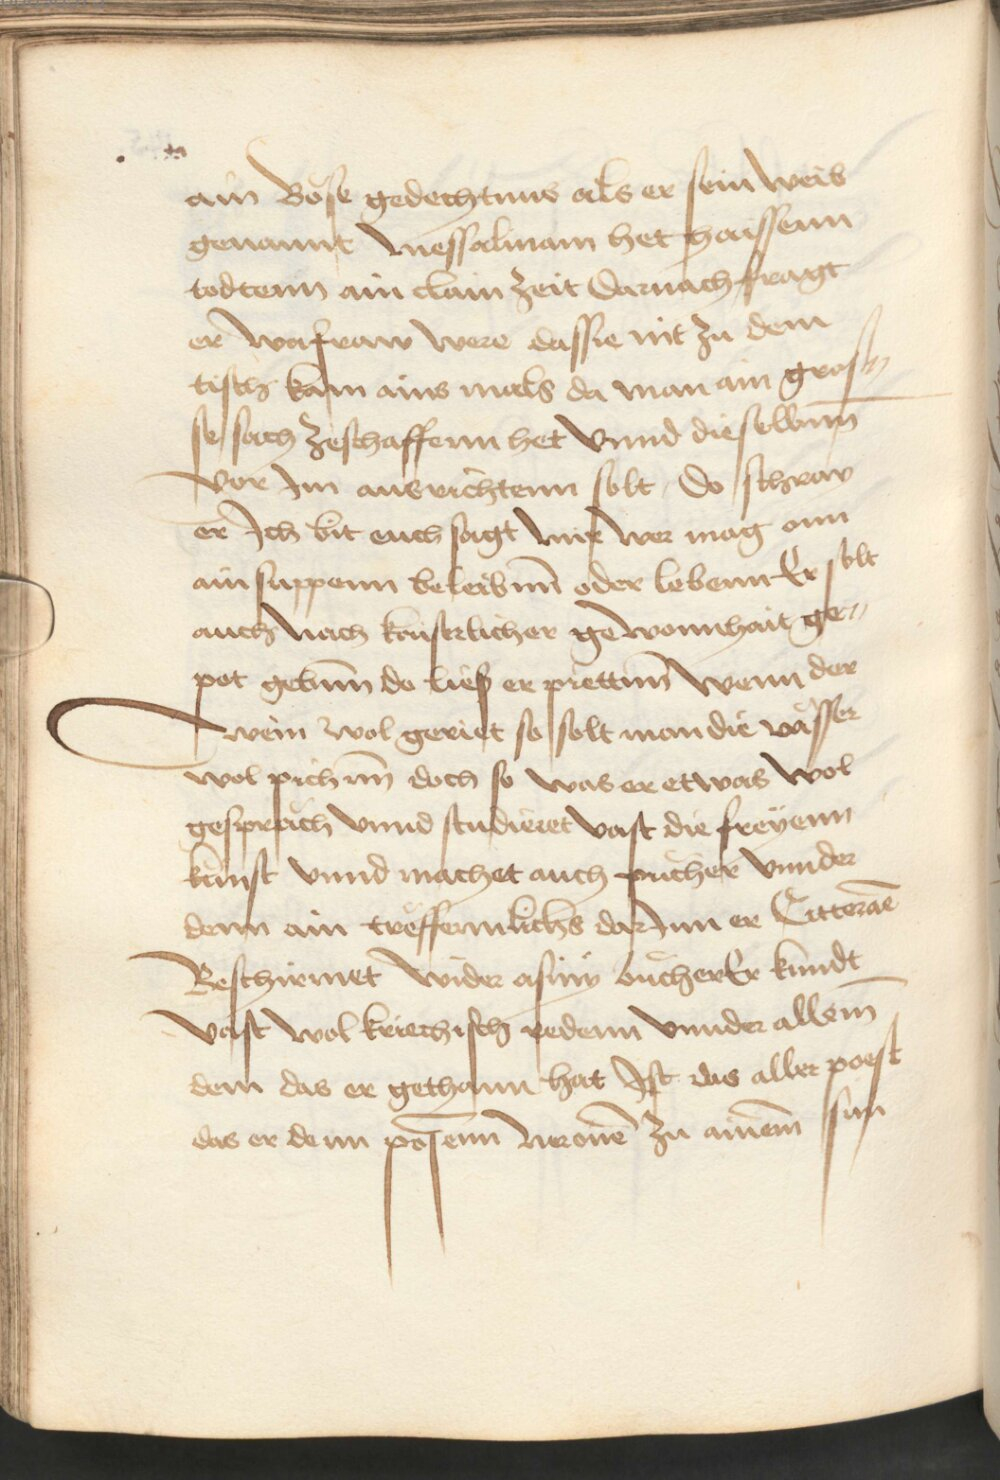 ain Böse gedechtnus als er sein weib
genannt Messalinam het haissenn
todtenn ain clain zeit darnach fragt
er wa fraw were das sie nit zu dem
tisch kam ains mals da man ain gros//
se sach zeschaffenn het vnnd dieselbenn̄
vor Im ausrichtenn solt Do schray
er Ich bit euch sagt mir wer mag onn
ain suppenn beleibenn̄ oder lebenn Er solt
auch nach kaiserlicher gewonnhait ge//
pot gebenn̄ do lies er prettenn̄ wenn der
wein wol geriet so solt man die vässer
wol pichenn̄ doch so was er etwas wol
gespräch vnnd studieret vast die freÿenn
künst vnnd machet auch pücher vnnder
denn ain treffennlichs dar Inn er Citteronē
Beschirmet wider asiny bücher Er kundt
vast wol kriechisch redenn vnnder allem̄
dem das er gethann hat Ist das aller poest
das er denn posenn neronē zu ainem̄ sun